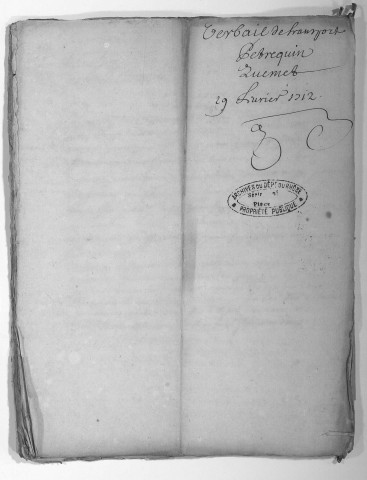 Verbail de transport
Petrequin
Quemet
29 fevrier 1712.
ARCHIVES DU DÉPT DU RHÔNE
Série
Pièce
PROPRIÉTÉ PUBLIQUE